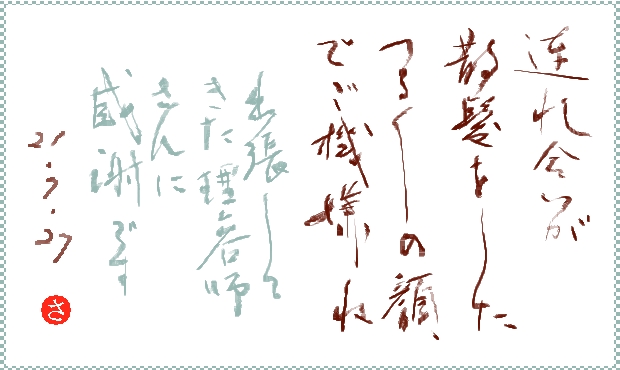 連れ合いが
散髪をした
つるくしの顔、
でご機嫌ね
出張して
きた理容師
さんに
感謝です
21.7.27
さ